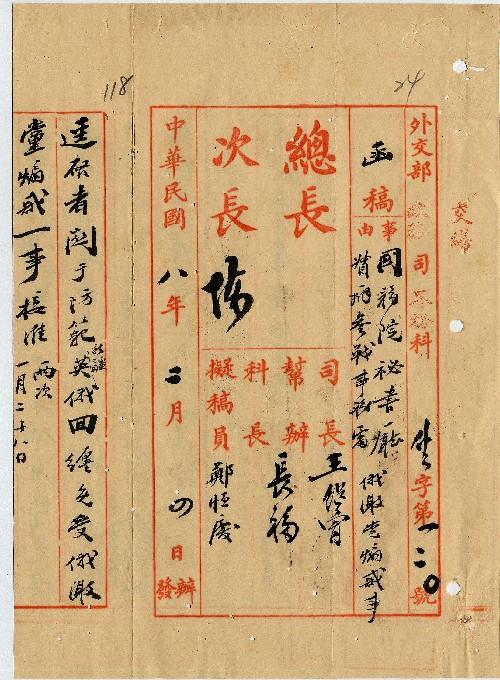 24
118
交辦
外交部 政務司 科 字第一二〇號
函稿
事由
國務院祕書廳
督辦參戰事務處 俄激黨煽惑事
總長
次長 陳
司長 王繼曾
幫辦
科長 長福
擬稿員 鄭恆慶
中華民國八年二月四日
辦
發
逕啟者關于防範英俄回纏免受俄激
黨煽惑一事 接准 兩次
一月二十八日